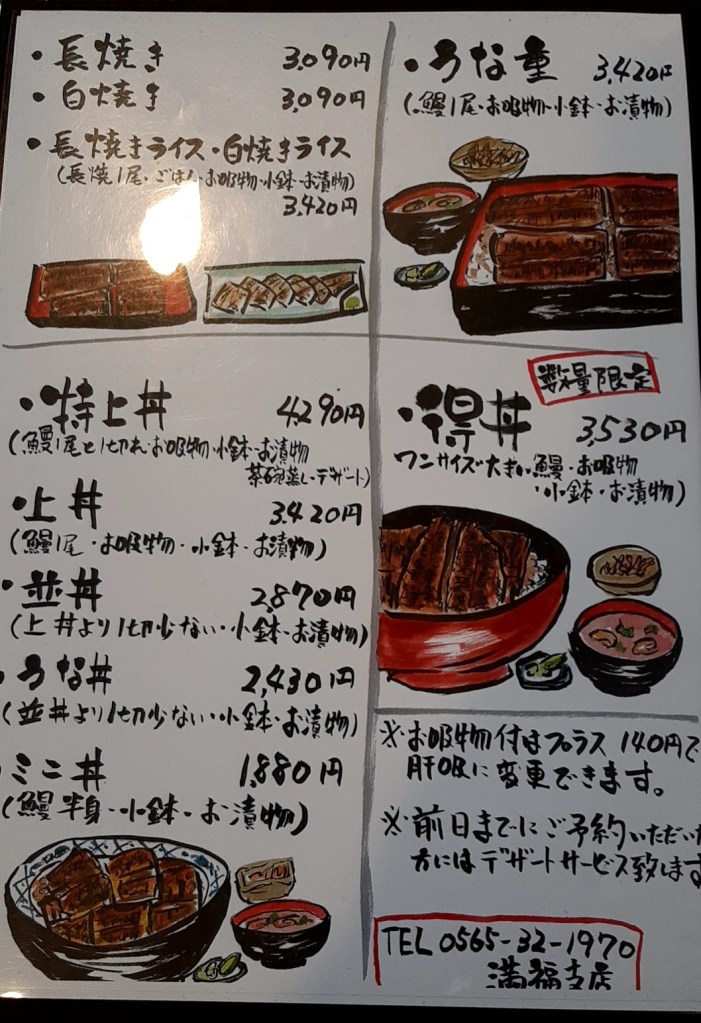 ・長焼き 3,090円
・白焼き 3,090円
・長焼きライス・白焼きライス
(長焼1尾・ごはん・お吸物・小鉢・お漬物)
3,420円
・うな重 3,420円
(鰻1尾・お吸物・小鉢・お漬物)
・特上丼 4,290円
(鰻1尾と1切れ・お吸物・小鉢・お漬物
茶碗蒸し・デザート)
・上丼 3,420円
(鰻1尾・お吸物・小鉢・お漬物)
・並丼 2,870円
(上丼より1切少ない・小鉢・お漬物)
うな丼 2,430円
(並丼より1切少ない・小鉢・お漬物)
ミニ丼 1,880円
(鰻半身・小鉢・お漬物)
数量限定
・得丼 3,530円
ワンサイズ大きい鰻・お吸物
・小鉢・お漬物)
※お吸物付はプラス140円で
肝吸に変更できます。
※前日までにご予約いただいた
方にはデザートサービス致します
TEL 0565-32-1970
満福支店